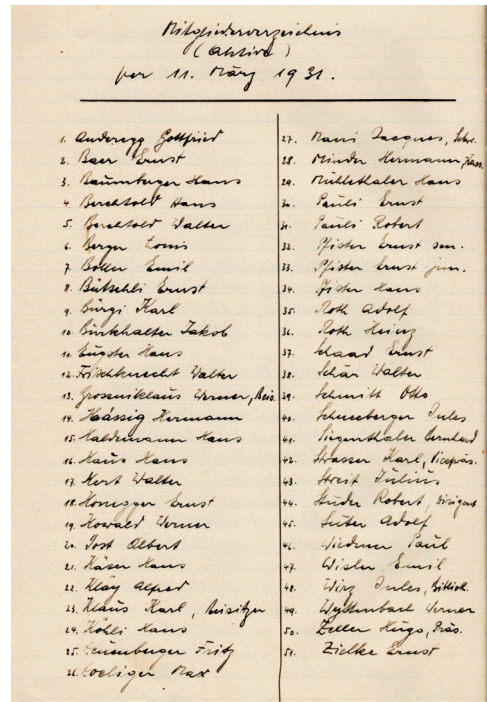 Mitgliederverzeichnis
(Aktive)
per 11. März 1931.
1. Anderegg Gottfried
2. Baer Ernst
3. Baumberger Hans
4. Berchtold Hans
5. Berchtold Walter
6. Berger Louis
7. Boller Emil
8. Bütschli Ernst
9. Bürgi Karl
10. Burkhalter Jakob
11. Eugster Hans
12. Frischknecht Walter
13. Grossniklaus Werner, Beis.
14. Haässig Hermann
15. Haldemann Hans
16. Haus Hans
17. Hert Walter
18. Honegger Ernst
19. Howald Werner
20. Jost Albert
21. Käser Hans
22. Kläy Alfred
23. Klaus Karl, Beisitzer
24. Köhli Hans
25. Leuenberger Fritz
26. Loeliger Max
27. Marti Jacques, Sekr.
28. Minder Hermann, Kass.
29. Mühlethaler Hans
30. Pauli Ernst
31. Pauli Robert
32. Pfister Ernst sen.
33. Pfister Ernst jun.
34. Pfister Hans
35. Roth Adolf
36. Roth Heinz
37. Schaad Ernst
38. Schär Walter
39. Schmitt Otto
40. Schneeberger Jules
41. Siegenthaler Bernhard
42. Strasser Karl, Vicepräs.
43. Streit Julius
44. Studer Robert, Dirigent
45. Suter Adolf
46. Wiedmer Paul
47. Wisler Emil
48. Wirz Jules, Bibliot.
49. Wyttenbach Werner
50. Zeller Hugo, Präs.
51. Zielke Ernst